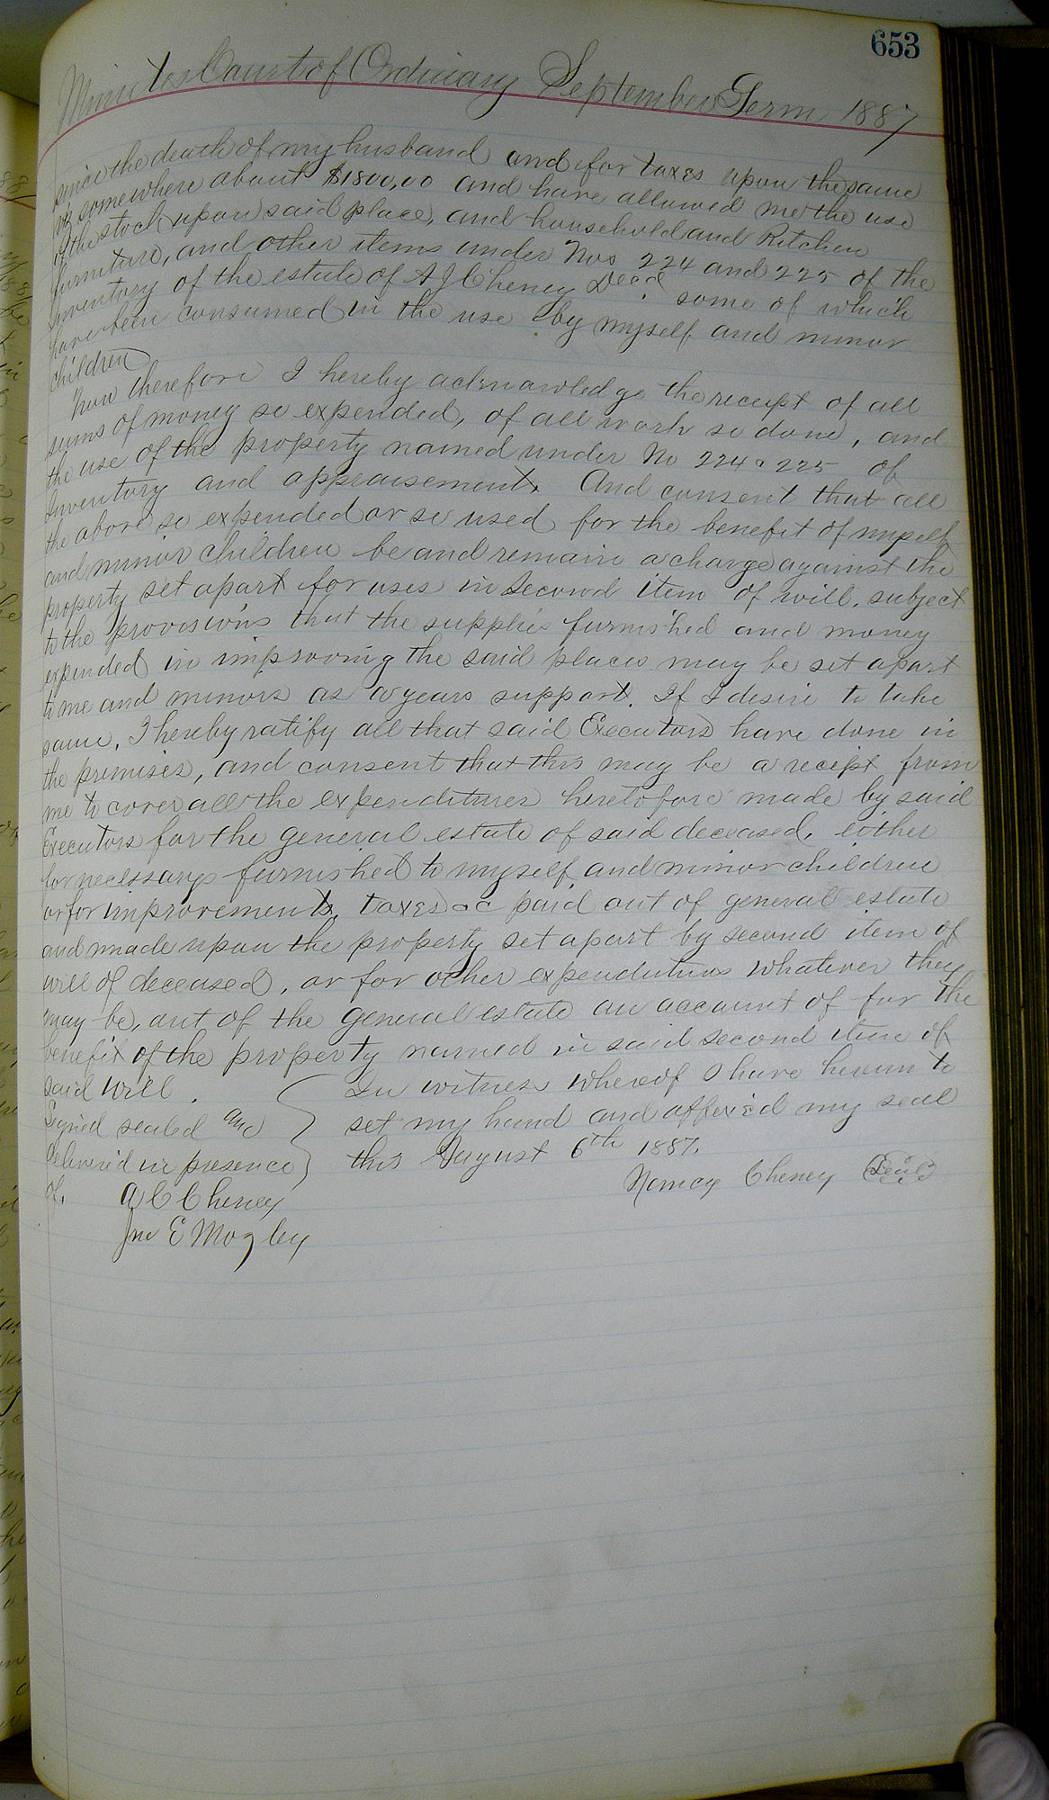 653
Minutes Court of Ordinary September Term 1887
since the death of my husband and for taxes upon the same
of somewhere about $1800.00 and have allowed me the use
of the stock upon said place, and household and Kitchen
furniture, and other items under Nos 224 and 225 of the
inventory of the estate of A J Cheney Decd. some of which
have been consumed in the use by myself and minor
children
Now therefore I hereby acknowledge the receipt of all
sums of money so expended, of all work so done, and
the use of the property named under No 224 & 225 of
Inventory and appraisement. And consent that all
the above so expended or so used for the benefit of myself
and minor children be and remain a charge against the
property set apart for uses in Second item of will. subject
to the provisions that the supplies furnished and money
expended in improving the said places may be set apart
to me and minors as a years support. If I desire to take
same, I hereby ratify all that said Executors have done in
the premises, and consent that this may be a receipt from
me to cover all the expenditures heretofore made by said
Executors for the general estate of said deceased, either
for necessarys furnished to myself and minor children
or for improvements, taxes &c paid out of general estate
and made upon the property set apart by second item of
will of deceased, or for other expenditures whatever they
may be, out of the general estate on account of for the
benefit of the property named in said second item of
said will. In witness whereof I have hereunto
Signed sealed and set my hand and affixed my seal
delivered in presence this August 6th 1887.
of. Nancy Cheney Seal
A C Cheney
Jno E Mozley